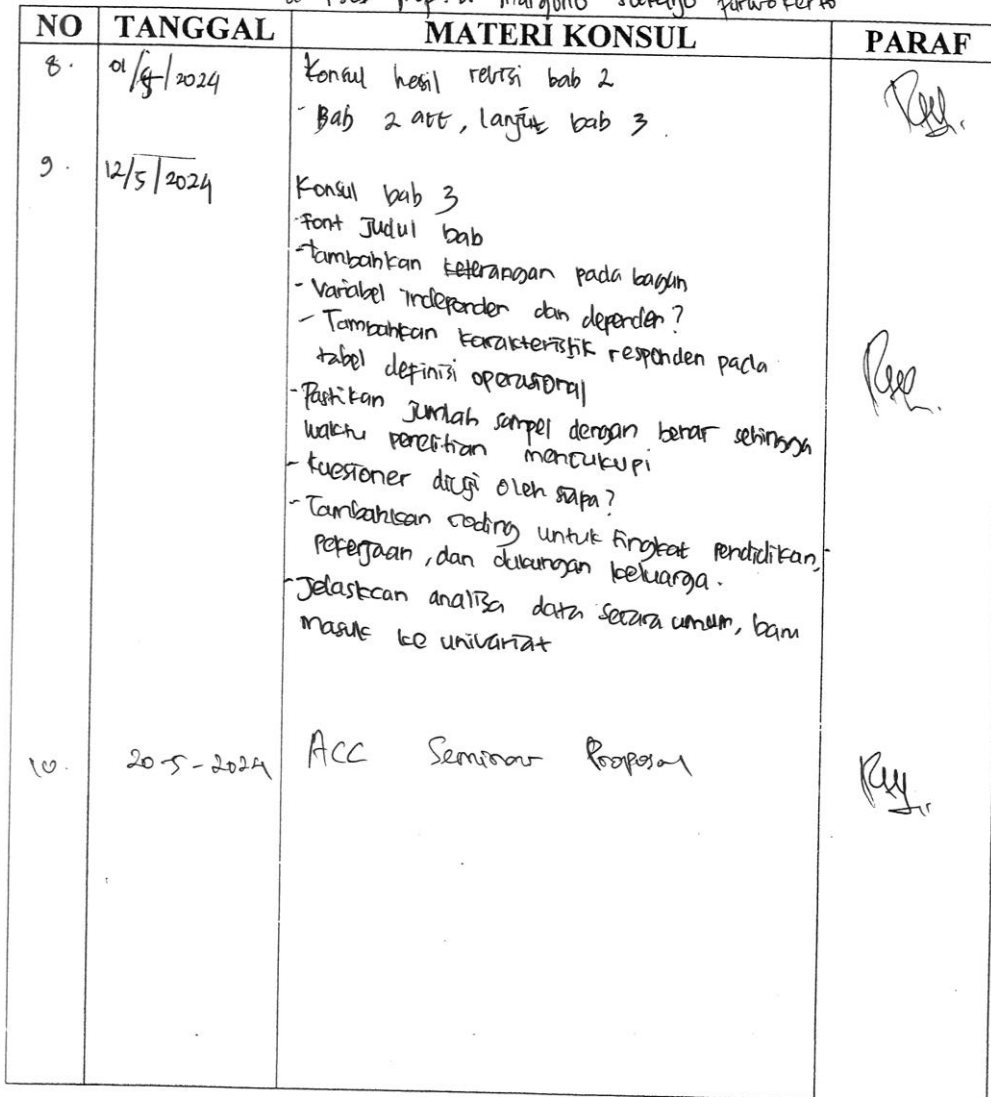 di RSUD Prof. Dr Margono Soekarjo Purwokerto
NO TANGGAL MATERI KONSUL PARAF
8. 01/5/2024 Konsul hasil revisi bab 2
- Bab 2 acc, lanjut bab 3.
9. 12/5/2024
Konsul bab 3
- Font Judul bab
- Tambahkan keterangan pada bagan
- Variabel independen dan dependen?
- Tambahkan karakteristik responden pada
tabel definisi operasional
- Pastikan Jumlah sampel dengan benar sehingga
waktu penelitian mencukupi
- Kuesioner diisi oleh siapa?
- Tambahkan coding untuk tingkat pendidikan,
pekerjaan, dan dukungan keluarga.
- Jelaskan analisa data secara umum, baru
masuk ke univariat
10. 20-5-2024 ACC Seminar Proposal